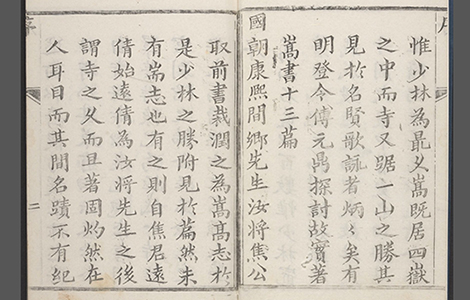 惟少林為最久嵩既居四嶽
之中而寺又踞一山之勝其
見於名賢歌詠者炳〻矣有
明登令傅元鼎探討故實著
嵩書十三篇
國朝康熙間鄉先生汝將焦公
取前書裁潤之為嵩高志於
是少林之勝附見於篇然未
有耑志也有之則自焦君遠
倩始遠倩為汝將先生之後
謂寺之久而且著固灼然在
人耳目而其間名蹟不有紀
序
二